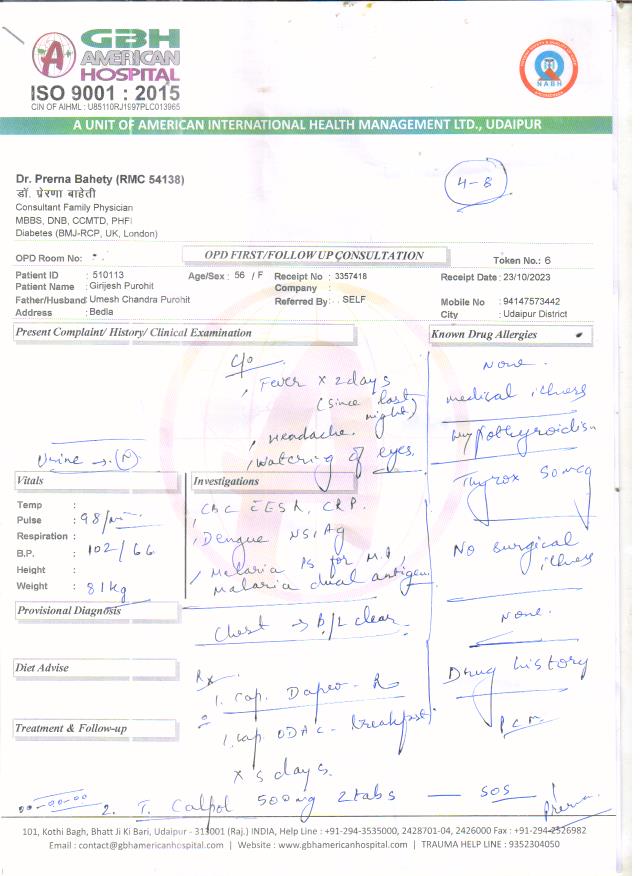 GBH
AMERICAN
HOSPITAL
ISO 9001 : 2015
CIN OF AIHML : U85110RJ1997PLC013965
NABH
A UNIT OF AMERICAN INTERNATIONAL HEALTH MANAGEMENT LTD., UDAIPUR
Dr. Prerna Bahety (RMC 54138)
डॉ. प्रेरणा बाहेती
Consultant Family Physician
MBBS, DNB, CCMTD, PHFI
Diabetes (BMJ-RCP, UK, London)
4-8
OPD Room No:
OPD FIRST/FOLLOW UP CONSULTATION
Token No.: 6
Patient ID : 510113 Age/Sex : 56 / F Receipt No : 3357418 Receipt Date : 23/10/2023
Patient Name : Girijesh Purohit Company :
Father/Husband Umesh Chandra Purohit Referred By : . . SELF Mobile No : 94147573442
Address : Bedla City : Udaipur District
Present Complaint/ History/ Clinical Examination
Known Drug Allergies
C/o
Fever x 2 days
(since last night)
Headache.
Watering of eyes.
None.
medical illness
hypothyroidism
Thyrox 50mcg
No surgical illness
None.
Drug history
PCM
Urine → (N)
Vitals
Temp :
Pulse : 98/m
Respiration :
B.P. : 102/66
Height :
Weight : 81kg
Investigations
CBC ESR, CRP.
Dengue NS1Ag
Malaria PS for M.P,
Malaria dual antigen
Provisional Diagnosis
Chest → B/L clear
Diet Advise
Rx
1. Cap.
Treatment & Follow-up
1 cap - breakfast
x 5 days.
2. T. Calpol 500mg 2tabs — SOS
Prerna
101, Kothi Bagh, Bhatt Ji Ki Bari, Udaipur - 313001 (Raj.) INDIA, Help Line : +91-294-3535000, 2428701-04, 2426000 Fax : +91-294-2526982
Email : contact@gbhamericanhospital.com | Website : www.gbhamericanhospital.com | TRAUMA HELP LINE : 9352304050